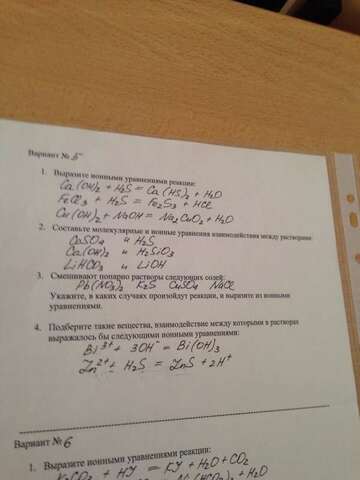 Вариант № 5
1. Выразите ионными уравнениями реакции:
Ca(OH)2 + H2S = Ca(HS)2 + H2O
FeCl3 + H2S = Fe2S3 + HCl
Cu(OH)2 + NaOH = Na2CuO2 + H2O
2. Составьте молекулярные и ионные уравнения взаимодействия между растворами:
CuSO4 и H2S
Ca(OH)2 и H2SiO3
LiHCO3 и LiOH
3. Смешивают попарно растворы следующих солей:
Pb(NO3)2 K2S CuSO4 NaCl
Укажите, в каких случаях произойдут реакции, и выразите их ионными
уравнениями.
4. Подберите такие вещества, взаимодействие между которыми в растворах
выражалось бы следующими ионными уравнениями:
Bi3+ + 3OH- = Bi(OH)3
Zn2+ + H2S = ZnS + 2H+
Вариант № 6
1. Выразите ионными уравнениями реакции:
K2CO3 + HJ = KJ + H2O + CO2
(HCO3)2 + H2O